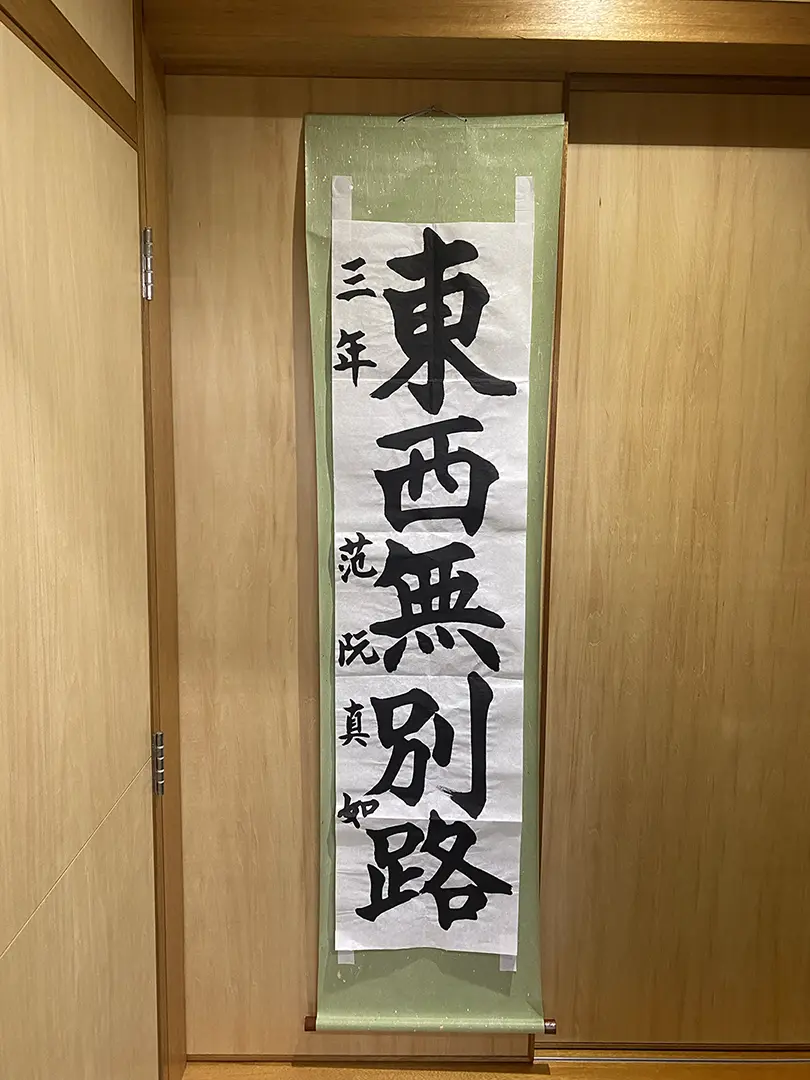 東西無別路
三年 范阮真如